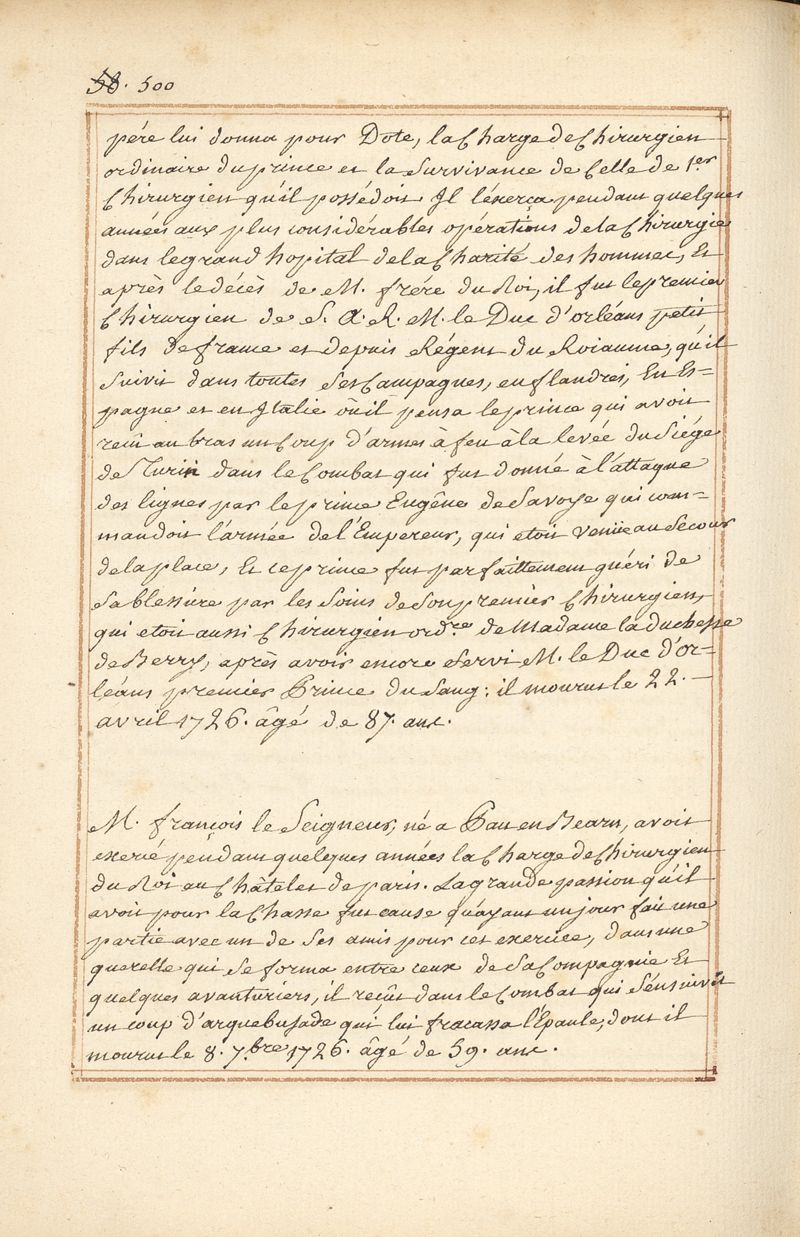 58. 500
pére lui donna pour Dote, la Charge de Chirurgien
ordinaire du prince et la Survivance de Celle de 1.er
Chirurgien qu'il possédoit Il l'éxerça pendant quelques
années aux plus considérables opérations de la Chirurgie
dans le grand hopital de la Charité des hommes, Et
après le décès de M. frére du Roi, il fut le premier
Chirurgien de S. A. R. M. le Duc d'orléans petit
fils de france et depuis Régent du Roiaume, qu'il
Suivit dans toutes Ses Campagnes, en flandres, En Es=
pagne et en Italie où il pensa le prince qui avoit
reçû au bras un Coup d'armes à feu à la levée du Siége
de Turin dans le Combat qui fut donné à l'attaque
des lignes par le prince Eugêne de Savoye qui com=
mandoit l'armée de l'Empereur, qui etoit venüe au Secour
de la place, Et ce prince fut parfaittement guéri de
Sa blessûre par les Soins de Son premier Chirurgien,
qui etoit aussi Chirurgien ord.re de Madame la duchesse
de Berry, après avoir encore Servi M. le Duc d'or=
léans premier Prince du Sang; il mourut le 22.
avril 1726. âgé de 87. ans.
M. françois le Seigneur, né a Pau en Bearn, avoit
exercé pendant quelques années la Charge de Chirurgien
du Roi au Châtelet de paris. La grande passion qu'il
avoit pour la Chasse fut cause qu'ayant un jour fait une
partie avec un de Ses amis pour cet exercice, dans une
querelle qui Se forma entre ceux de Sa Compagnie Et
quelques avanturiers, il reçût dans le Combat qui S'ensuivit
un coup d'arquebusade qui lui fracassa l'Epaule, dont il
mourut le 8. 7.bre 1726. âgé de 59. ans.